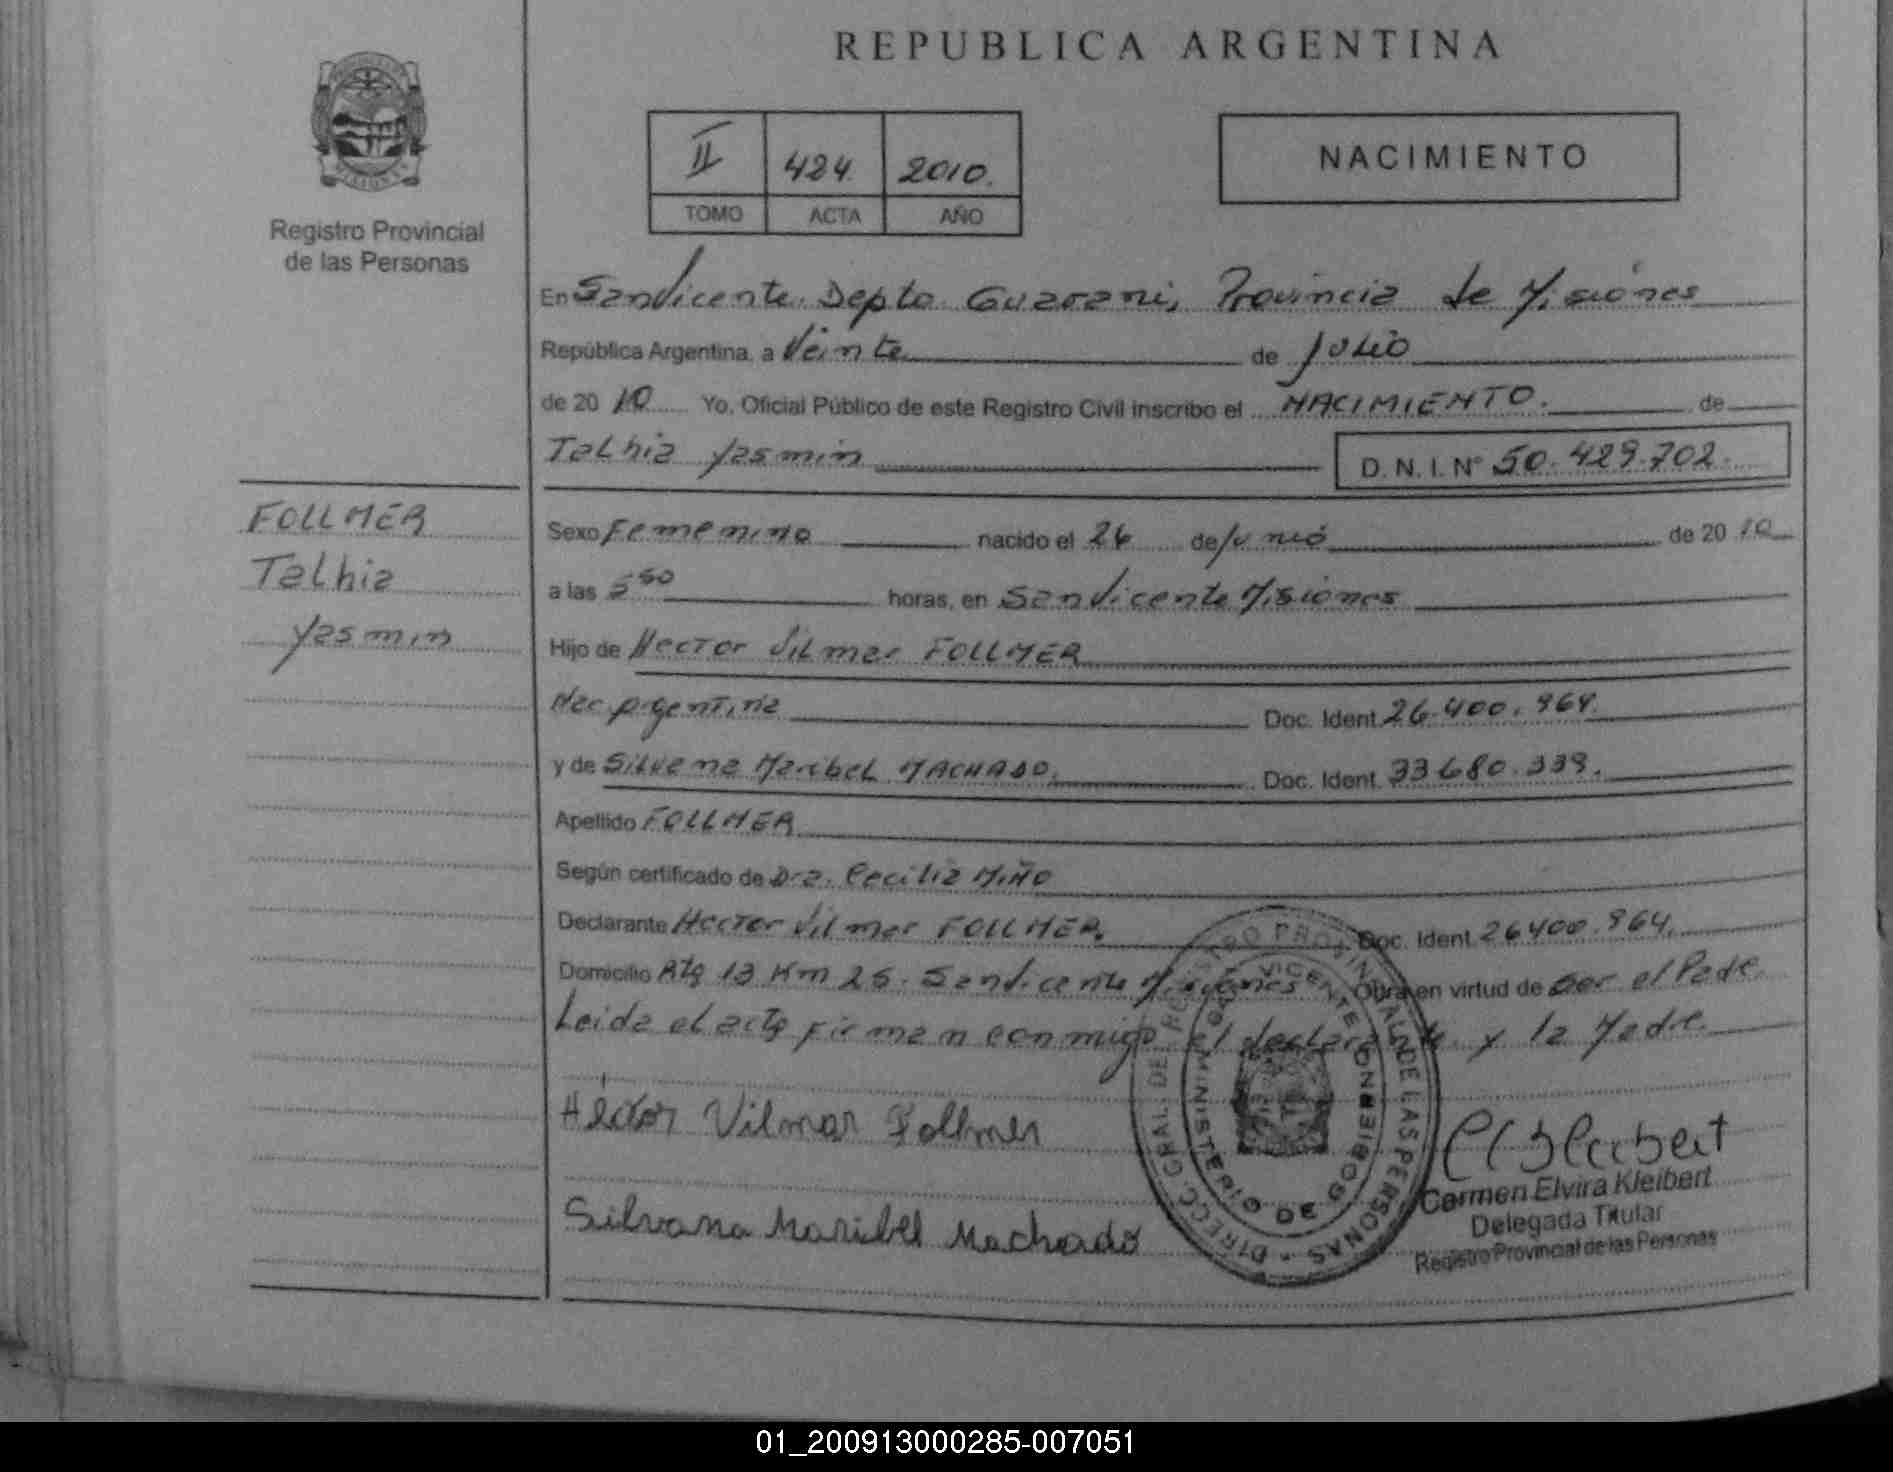 REPUBLICA ARGENTINA
II 424 2010.
TOMO ACTA AÑO
NACIMIENTO
Registro Provincial
de las Personas
En San Vicente Depto Guarani, Provincia de Misiones
República Argentina, a Veinte de Julio
de 20 10 Yo, Oficial Público de este Registro Civil inscribo el NACIMIENTO. de
Talhia Yasmin D.N.I. N° 50.429.702.
FOLLMER
Talhia
Yasmin
Sexo Femenino nacido el 26 de Junio de 20 10
a las 5 50 horas, en San Vicente Misiones
Hijo de Hector Vilmar FOLLMER
Nac. Argentina Doc. Ident. 26.400.964.
y de Silvana Maribel MACHADO. Doc. Ident. 33.680.339.
Apellido FOLLMER
Según certificado de Dra. Cecilia Miño
Declarante Hector Vilmar FOLLMER. Doc. Ident. 26400.964.
Domicilio Rta 13 Km 25. San Vicente Misiones Obra en virtud de ser el Padre
Leida el acta firman conmigo el declarante y la Madre.
Hector Vilmar Follmer
Silvana Maribel Machado
DIRECC. GRAL. DE REGISTRO PROVINCIAL DE LAS PERSONAS
MINISTERIO DE GOBIERNO
VICENTE
Carmen Elvira Kleibert
Delegada Titular
Registro Provincial de las Personas
01_200913000285-007051